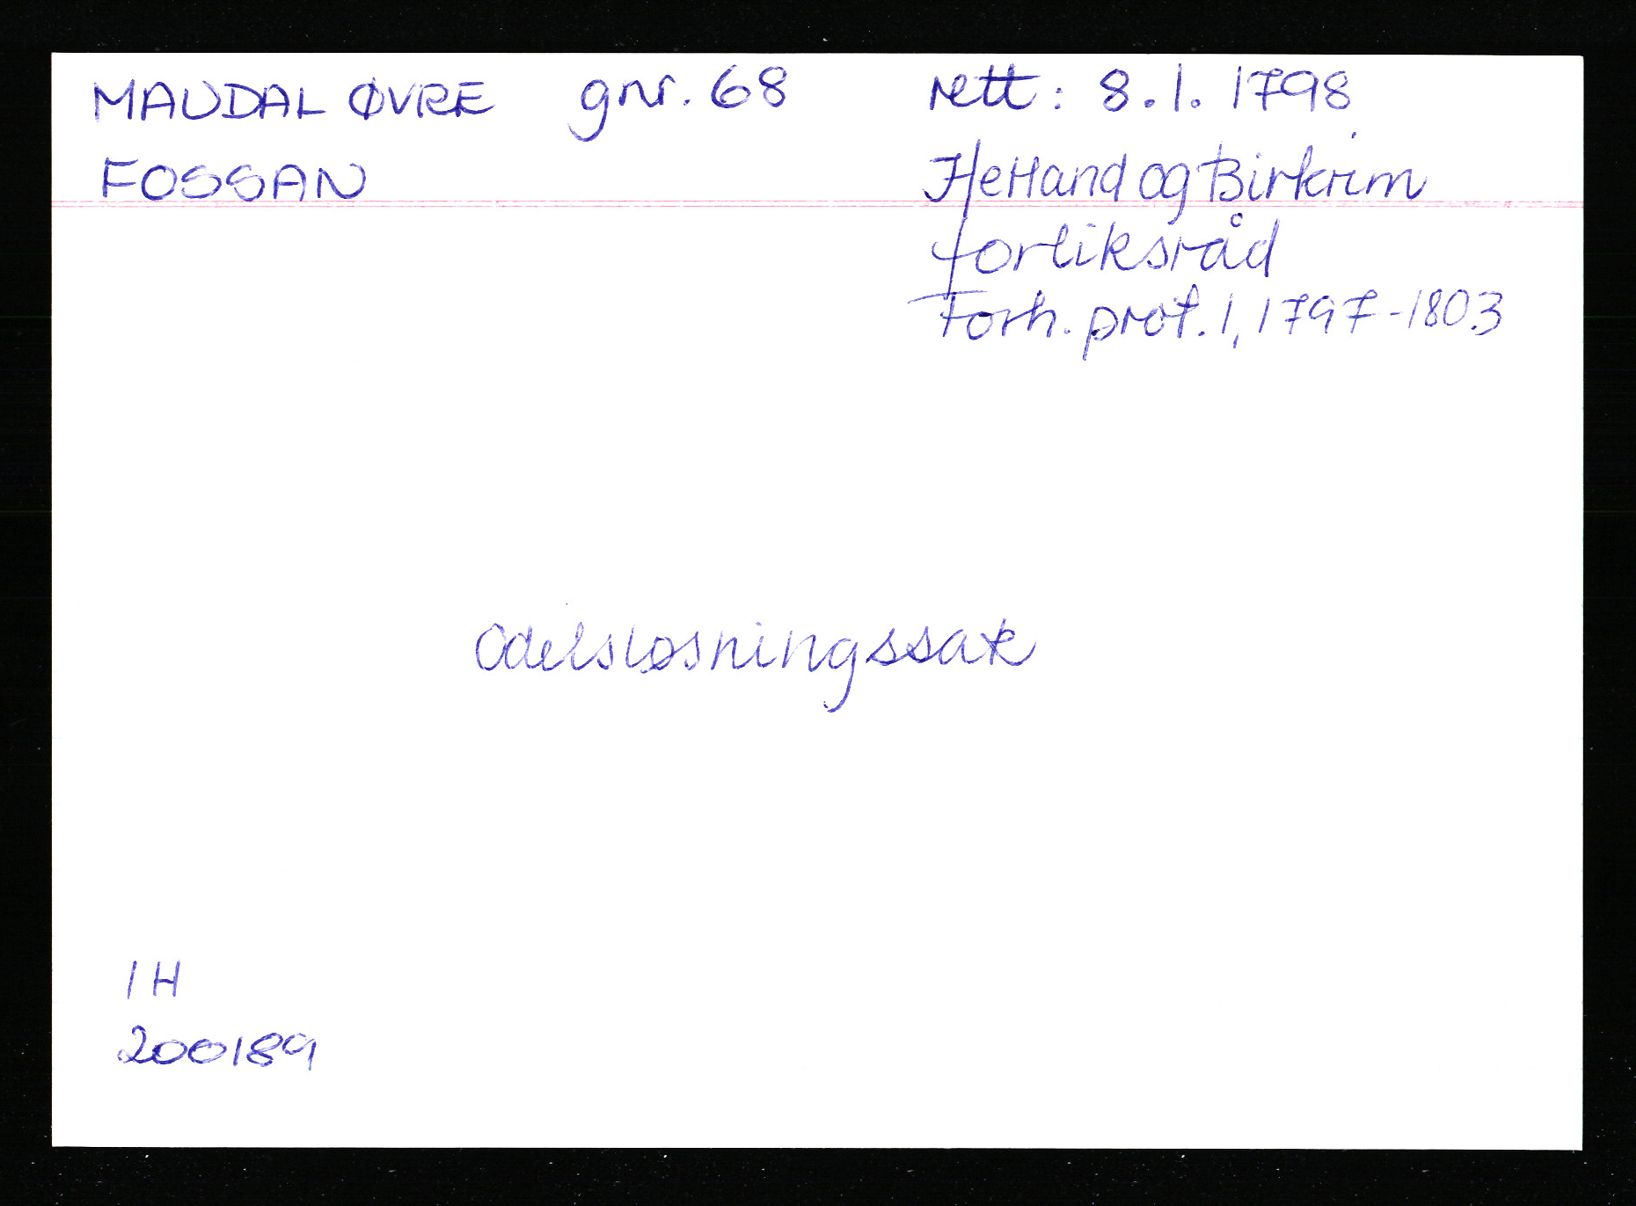 MAUDAL ØVRE gnr. 68 rett: 8.1. 1798
FOSSAN Helland og Birkrim
forliksråd
Forh. prot. 1, 1797-1803
Odelsløsningssak
IH
200189